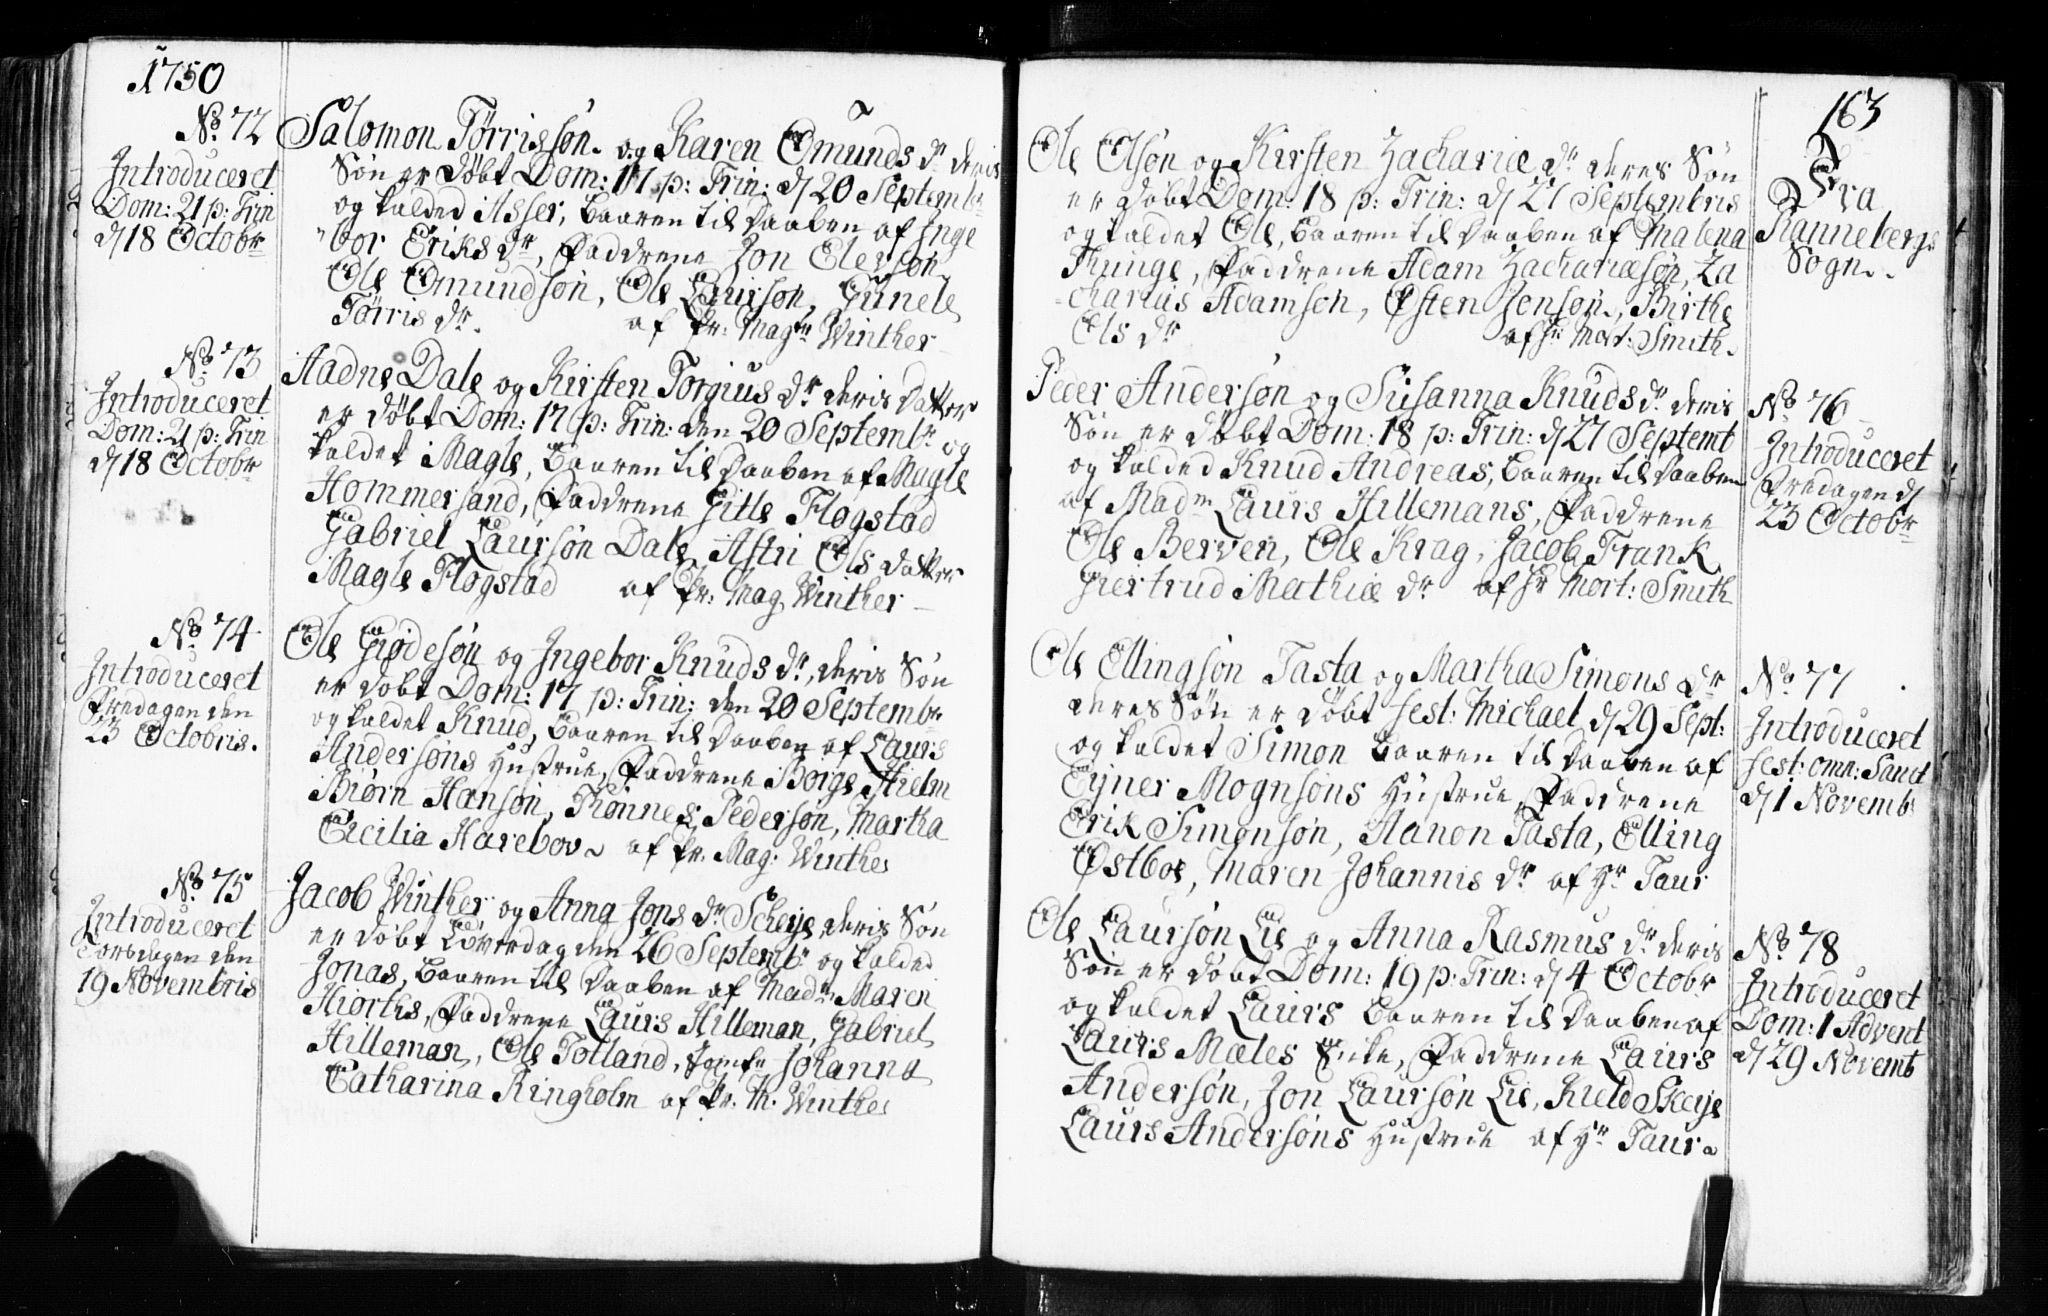 1750
No. 72
Introduceret
Dom: 21 p: Trin
d 18 Octobr
Salomon Tørrissøn og Karen Omunds dr deris
Søn er døbt Dom: 17 p: Trin: d 20 Septembr
og kalded Asser, baaren til Daaben af Inge
bor Eriks dr, Faddrene Jon Elerson
Ole Omundsøn, Ole Laursøn, Gunele
Tørris dr. af Pr: Magr Winther
No. 73
Introduceret
Dom: 21 p: Trin
d 18 Octobr
Aadne Dale og Kirsten Torgius dr deris Datter
er døbt Dom: 17 p: Trin: den 20 Septembr og
kaldet Magle, baaren til Daaben af Magle
Hommersand, Faddrene Gitle Flogstad
Gabriel Laursøn Dale, Astri Ols datter
Magle Flogstad af Pr: Mag Winther
No. 74
Introduceret
Fredagen den
23 Octobris.
Ole Giødesøn og Ingebor Knuds dr, deris Søn
er døbt Dom: 17 p: Trin: den 20 Septembr
og kaldet Knud, baaren til Daaben af Laurs
Andersøns Hustrue, Faddrene Børge Hielm
Biørn Hansøn, Tønnes Pedersøn, Martha
Cecilia Harebov af Pr. Mag: Winther
No. 75
Introduceret
Torsdagen den
19 Novembris
Jacob Winther og Anna Jons dr Scheije deris Søn
er døbt Løverdag den 26 Septembr og kalded
Jonas, baaren til Daaben af Madm Maren
Hiorths, Faddrene Laurs Hilleman, Gabriel
Hilleman, Ole Totland, Jomfr Johanna
Catharina Ringholm af Pr. M. Winther
163
Fra
Ranneberg
Sogn.
Ole Olsøn og Kirsten Zachariæ dr deres Søn
er døbt Dom: 18 p: Trin: d 27 Septembris
og kaldet Ole, baaren til Daaben af Malena
Kunge, Faddrene Adam Zachariæsøn, Za
charias Adamsøn, Østen Jonsøn, Birthe
Ols dr af Hr Mort: Smith.
No. 76
Introduceret
Fredagen d
23 Octobr
Peder Andersøn og Susanna Knuds dr deris
Søn er døbt Dom: 18 p: Trin: d 27 Septemb
og kalded Knud Andreas, baaren til Daaben
af Madm Laurs Hillemans, Faddrene
Ole Berven, Ole Krag, Jacob Frank
Giertrud Mathiæ dr af Hr Mort: Smith
No. 77
Introduceret
fest: omn: Sanct
d 1 Novemb
Ole Ellingsøn Tasta og Martha Simons dr
deres Søn er døbt fest: Michael d 29 Sept:
og kaldet Simon baaren til Daaben af
Ejner Mognsøns Hustrue, Faddrene
Erik Simonsøn, Aanon Tasta, Elling
Østboe, Maren Johannis dr af Hr Taur
No. 78
Introduceret
Dom: 1 Advent
d 29 Novemb
Ole Laursøn Lie og Anna Rasmus dr deris
Søn er døbt Dom: 19 p: Trin: d 4 Octobr
og kaldet Laurs baaren til Daaben af
Laurs Mæles Enke, Faddrene Laurs
Andersøn, Jon Laursøn Lie, Kield Skeije
Laurs Andersøns Hustrue af Hr Taur